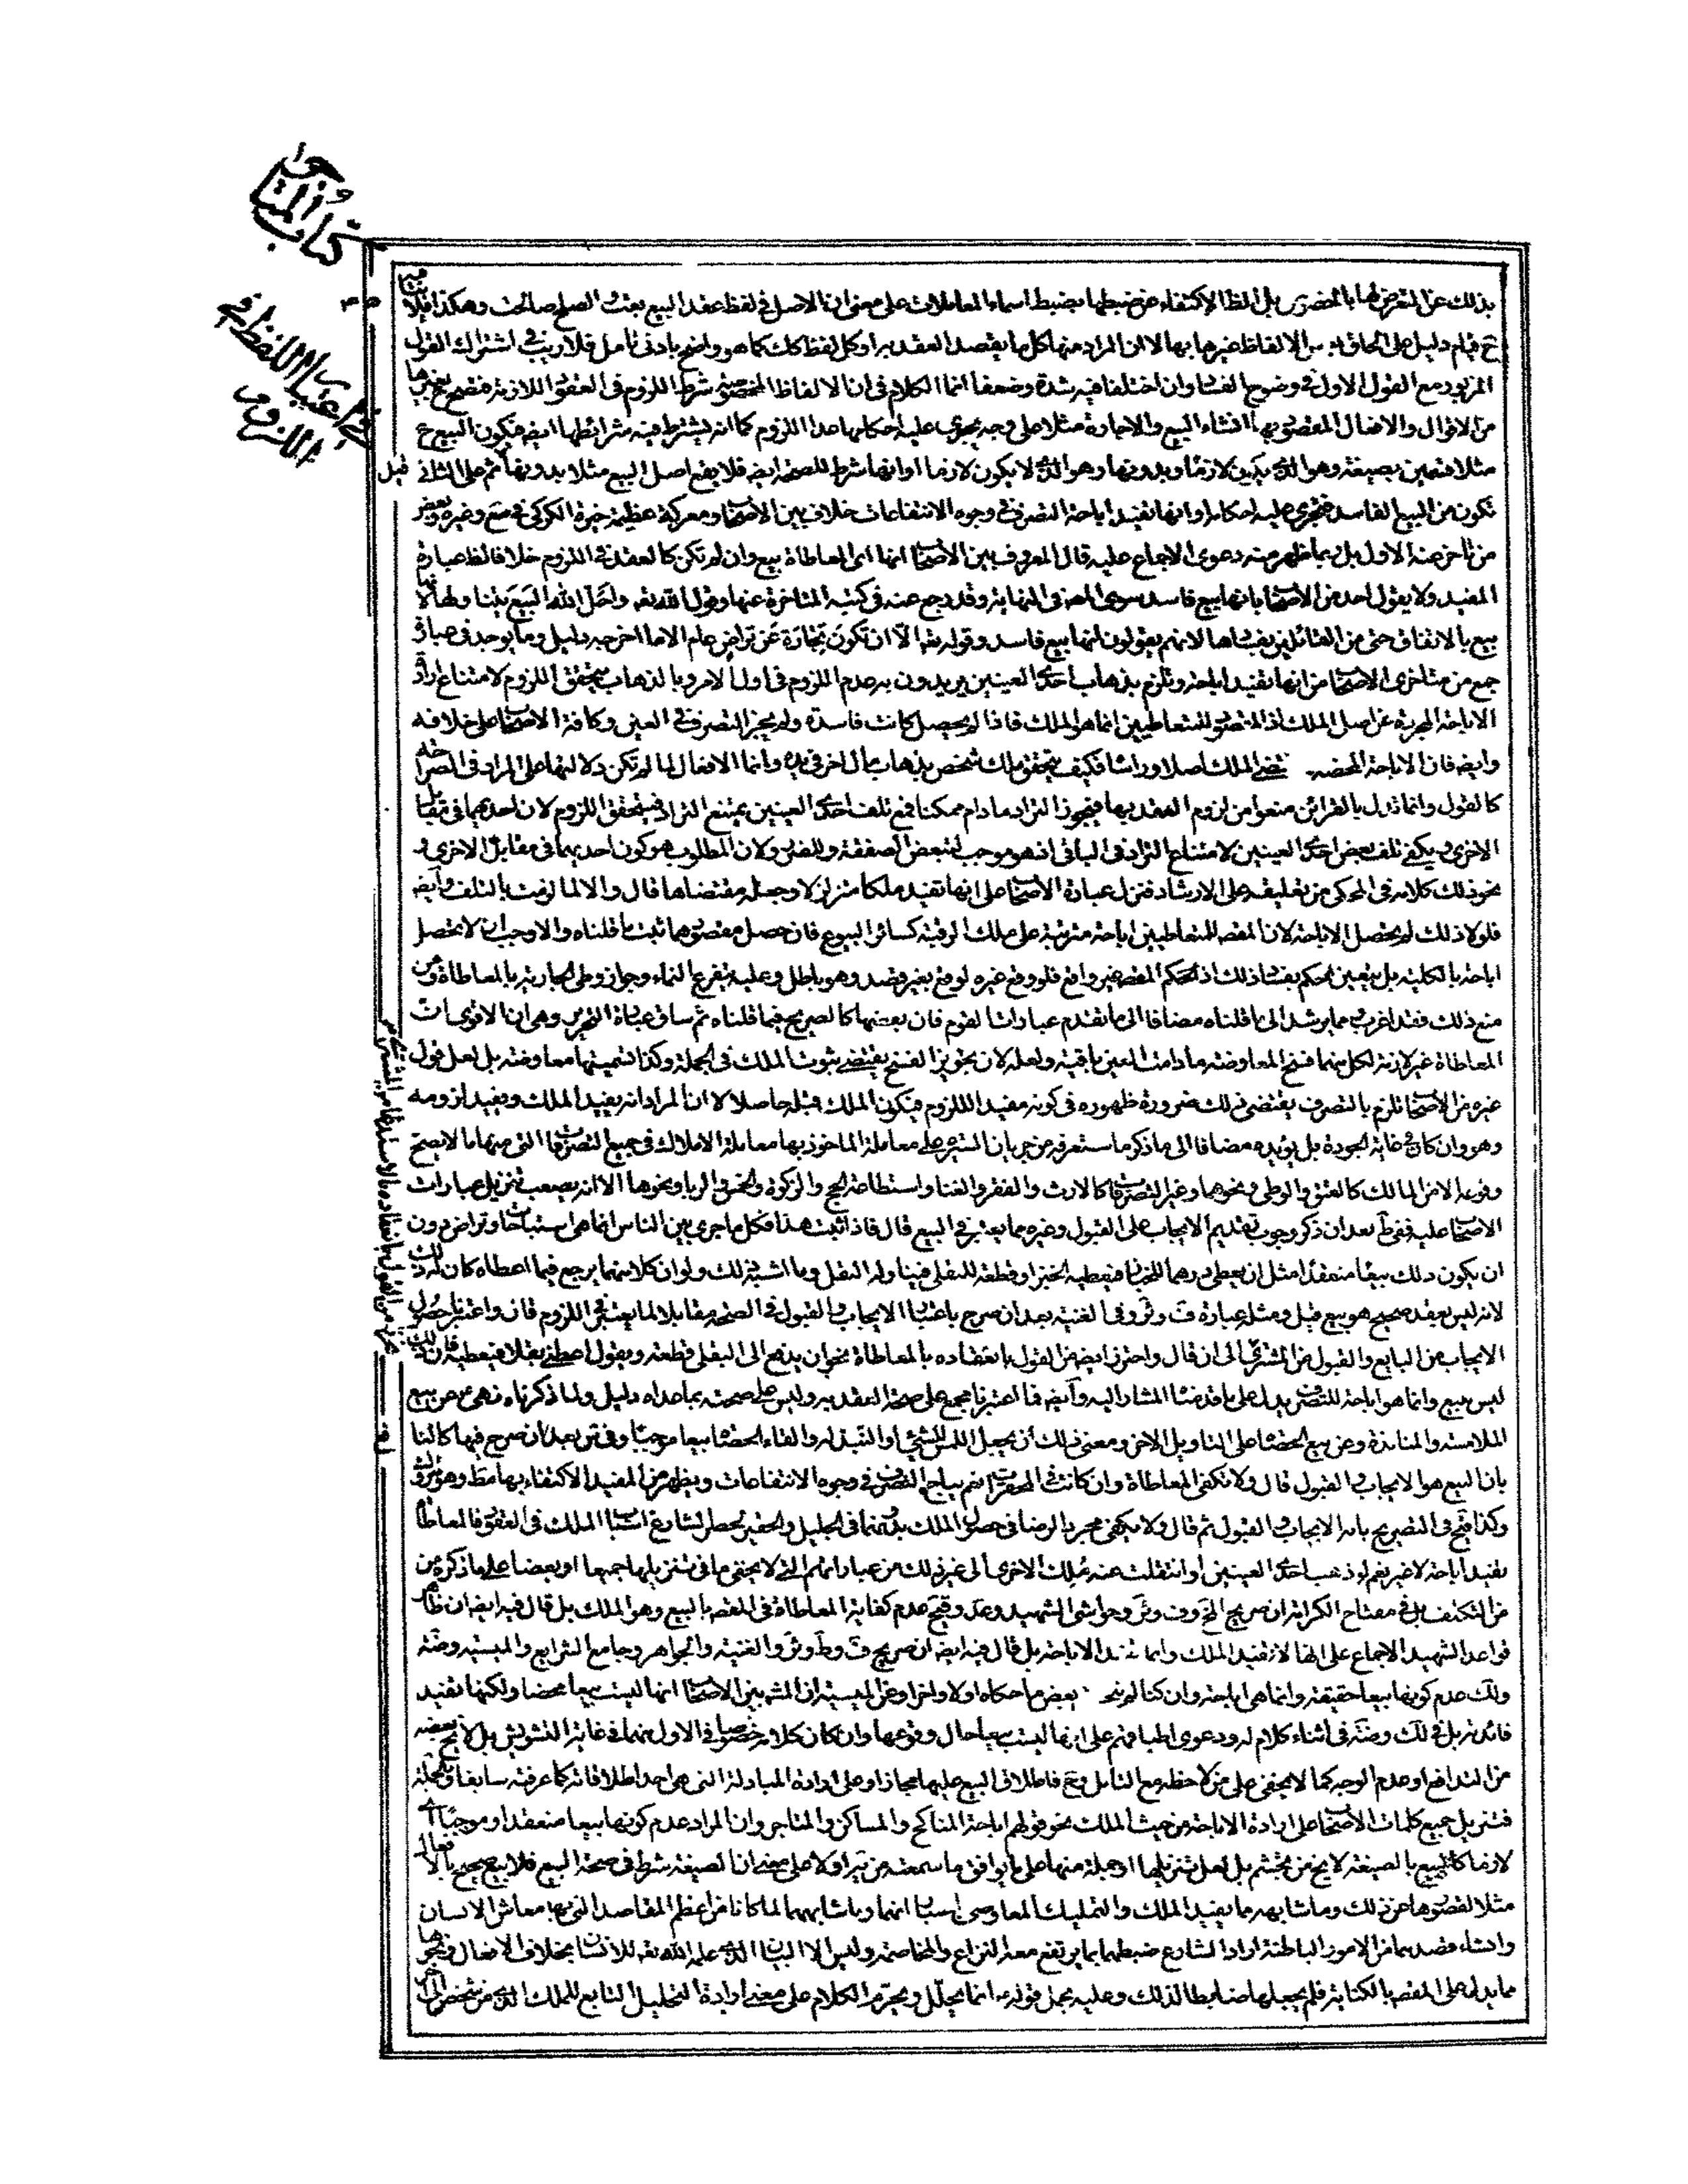 كتاب المتاجر
في اعتبار اللفظ في اللزوم
بذلك عن التعرض لها بالخصوص بل لفظ الاكتفاء عن ضبطها بضبط اسماء المعاملات على معنى ان الاصل في لفظ عقد البيع بعت و الصلح صالحت وهكذا
قيام دليل على الحاق الالفاظ غيرها بها الا ان المراد منها كل ما يقصد العقد به او كل لفظ كك كما هو واضح بادنى تامل فلا ريب في اشتراك القول
المزبور مع القول الاول في وضوح الفساد وان اختلفا فيه شدة وضعفا انما الكلام في ان الالفاظ المخصوصة شرط اللزوم في العقود اللازمة
من الاقوال والافعال المقصود بها انشاء البيع والاجارة مثلا على وجه يجرى عليه احكامها عدا اللزوم كما انه يشترط فيه شرائطها ايضا فيكون البيع ح
مثلا قسمين بصيغة وهو الذى يكون لازما وبدونها وهو الذى لا يكون لازما او انها شرط للصحة ايضا فلا يقع اصل البيع مثلا بدونها ثم على الثاني
تكون من البيع الفاسد فتجرى عليه احكامه او انها تفيد اباحة التصرف في وجوه الانتفاعات خلاف بين الاصحاب ومعركة عظيمة خيرة الكركي في صع وغيره وبعض
من تاخر عنه الاول بل ربما ظهر منه دعوى الاجماع عليه قال المعروف بين الاصحاب انها اى المعاطاة بيع وان لم تكن كالعقد في اللزوم خلافا لظ عبارة
المفيد ولا يقول احد من الاصحاب بانها بيع فاسد سوى المص في النهاية وقد رجع عنه في كتبه المتاخرة عنها وقول الله تعه واحل الله البيع يتناولها لانها
بيع بالاتفاق حتى من القائلين بفسادها لانهم يقولون انها بيع فاسد وقوله تعا الا ان تكون تجارة عن تراض عام الا ما اخرجه دليل وما يوجد في عبارة
جمع من متاخرى الاصحاب من انها تفيد اباحة وتلزم بذهاب احدى العينين يريدون به عدم اللزوم في اول الامر وبالذهاب يتحقق اللزوم لامتناع ارادة
الاباحة المجردة عن اصل الملك اذ المقصود للمتعاطيين انما هو الملك فاذا لم يحصل كانت فاسدة ولم يجز التصرف في العين وكافة الاصحاب على خلافه
وايضا فان الاباحة المحضة لا تقتضى الملك اصلا وراسا فكيف يتحقق ملك شخص بذهاب مال اخر في يده وانما الافعال لما لم تكن دلالتها على المراد في الصراحة
كالقول وانما تدل بالقرائن منعوا من لزوم العقد بها فيجوز التراد ما دام ممكنا فمع تلف احدى العينين يمتنع التراد فيتحقق اللزوم لان احديهما في مقابل
الاخرى ويكفى تلف بعض احدى العينين لامتناع التراد في الباقي اذ هو موجب لتبعض الصفقة وللضرر ولان المطلوب هو كون احديهما في مقابل الاخرى و
نحو ذلك كلامه في المحكى من تعليقه على الارشاد فنزل عبارة الاصحاب على انها تفيد ملكا متزلزلا وجعله مقتضاها قال والا لما لزمت بالتلف وايضا
فلولا ذلك لم يحصل الاباحة لان المقصود للمتعاطيين اباحة مترتبة على ملك الرقبة كسائر البيوع فان حصل مقصودهما ثبت ما قلناه والا وجب ان لا يحصل
اباحة بالكلية بل يتعين الحكم بفساد ذلك اذ الحكم المقصود غير واقع فلو وقع غيره لوقع بغير قصد وهو باطل وعليه يتفرع النماء وجواز وطى الجارية بالمعاطاة ومن
منع ذلك فقد اغرب مما يرشد الى ما قلناه مضافا الى ما تقدم عبارات القوم فان بعضها كالصريح فيما قلناه ثم ساق عبارة التحرير وهى ان الاقوى ان
المعاطاة غير لازمة لكل منهما فسخ المعاوضة ما دامت العين باقية ولعله لان تجويز الفسخ يقتضى ثبوت الملك في الجملة وكذا تسميتها معاوضة بل لعل قول
غيره من الاصحاب تلزم بالتصرف يقتضى ذلك ضرورة ظهوره في كونه مفيد اللزوم فيكون الملك قبله حاصلا لا ان المراد انه يفيد الملك ويفيد لزومه
وهو وان كان في غاية الجودة بل يؤيده مضافا الى ما ذكر ما ستعرفه من جريان السيرة على معاملة الماخوذ بها معاملة الاملاك في جميع التصرفات التي منها ما لا يصح
وقوعه الا من المالك كالعتق والوطى ونحوهما وغير التصرفات كالارث والفقر والغنا واستطاعة الحج والزكوة والخمس والربا ونحوها الا انه يصعب تنزيل عبارات
الاصحاب عليه ففى ط بعد ان ذكر وجوب تقديم الايجاب على القبول وغيره مما يعتبر في البيع قال فاذا ثبت هذا فكل ما جرى بين الناس انما هى استباحات وتراض دون
ان يكون ذلك بيعا منعقدا مثل ان يعطى درهما للخباز فيعطيه الخبز او قطعة للبقلى فيناوله البقل وما اشبه ذلك ولو ان كلا منهما يرجع فيما اعطاه كان له ذلك
لانه ليس بعقد صحيح هو بيع قيل ومثله عبارة ف وئر وفى الغنية بعد ان صرح باعتبار الايجاب والقبول في الصحة مقابلا لما يعتبر في اللزوم قال واعتبرنا حصول
الايجاب من البايع والقبول من المشترى الى ان قال واحترز ايضا من القول بانعقاده بالمعاطاة نحو ان يدفع الى البقلى قطعة ويقول اعطنى بقلا فيعطيه فان ذلك
ليس ببيع وانما هو اباحة للتصرف يدل على ما قدمنا المشار اليه وايضا فما اعتبرنا مجمع على صحة العقد به وليس على صحته بما عداه دليل ولما ذكرناه نهى ص عن بيع
الملامسة والمنابذة وعن بيع الحصاة على التاويل الاخر ومعنى ذلك ان يجعل اللمس للشئ او النبذ له والقاء الحصاة بيعا موجبا
بان البيع هو الايجاب والقبول قال ولا تكفى المعاطاة وان كانت في المحقرات نعم يباح التصرف في وجوه الانتفاعات ويظهر من المفيد الاكتفاء بها مط
وكذا في التصريح بانه الايجاب والقبول ثم قال ولا يكفى مجرد الرضا في حصول الملك بدونهما في الجليل والحقير لحصر الشارع اسباب الملك في العقود فالمعاطاة
يفيد اباحة لا غير نعم لو ذهب احدى العينين او انتقلت عنه ملك الاخرى الى غير ذلك من عباراتهم التى لا يخفى ما في تنزيلها جميعا او بعضا على ما ذكره من
من التكلف بل في مفتاح الكرامة ان صريح وحواشى الشهيد عدم كفاية المعاطاة في المقصود بالبيع وهو الملك بل قال فيه ايضا ان ظاهر
قواعد الشهيد الاجماع على انها لا تفيد الملك وانما تفيد الاباحة بل قال فيه ايضا ان صريح ف وط وئر والغنية والجواهر وجامع الشرايع والميسية وضة
ولك عدم كونها بيعا حقيقة وانما هى اباحة وان كنا لم نجد بعض ما حكاه اولا واخرا وعن الميسية ان المشهور بين الاصحاب انها ليست بيعا محضا ولكنها تفيد
فائدته بل في لك وضة في اثناء كلام له دعوى اطباقهم على انها ليست بيعا حال وقوعها وان كان كلامه خصوصا في الاول منهما في غاية التشويش بل لا يخ بعضه
من التدافع او عدم الوجه كما لا يخفى على من لاحظه مع التامل وح فاطلاق البيع عليها مجازا وعلى ارادة المبادلة التى هى احد اطلاقاته كما عرفته سابقا وبالجملة
فتنزيل جميع كلمات الاصحاب على ارادة الاباحة من حيث الملك نحو قولهم اباحة المناكح والمساكن والمتاجر وان المراد عدم كونها بيعا منعقدا وموجبا
لازما كالبيع بالصيغة لا يخ من تجشم بل لعل تنزيلها او جملة منها على ما يوافق ما سمعته من ية اولا على معنى ان الصيغة شرط في صحة البيع فلا بيع صحيح بالافعال
مثلا لقصورها عن ذلك وما شابهه مما يفيد الملك والتمليك المعاوضى لانهما وما شابههما لما كانا من اعظم المقاصد التى بها معاش الانسان
وانشاء قصدهما من الامور الباطنة اراد الشارع ضبطهما بما يرتفع معه النزاع والمخاصمة وليس الا البيان الذى علمه الله تعه للانسان بخلاف الافعال ونحوها
مما يدل على المقصود بالكناية فلم يجعلها ضابطا لذلك وعليه يحمل قوله ع انما يحلل ويحرم الكلام على معنى ارادة التحليل التابع للملك الذى من شخص الى